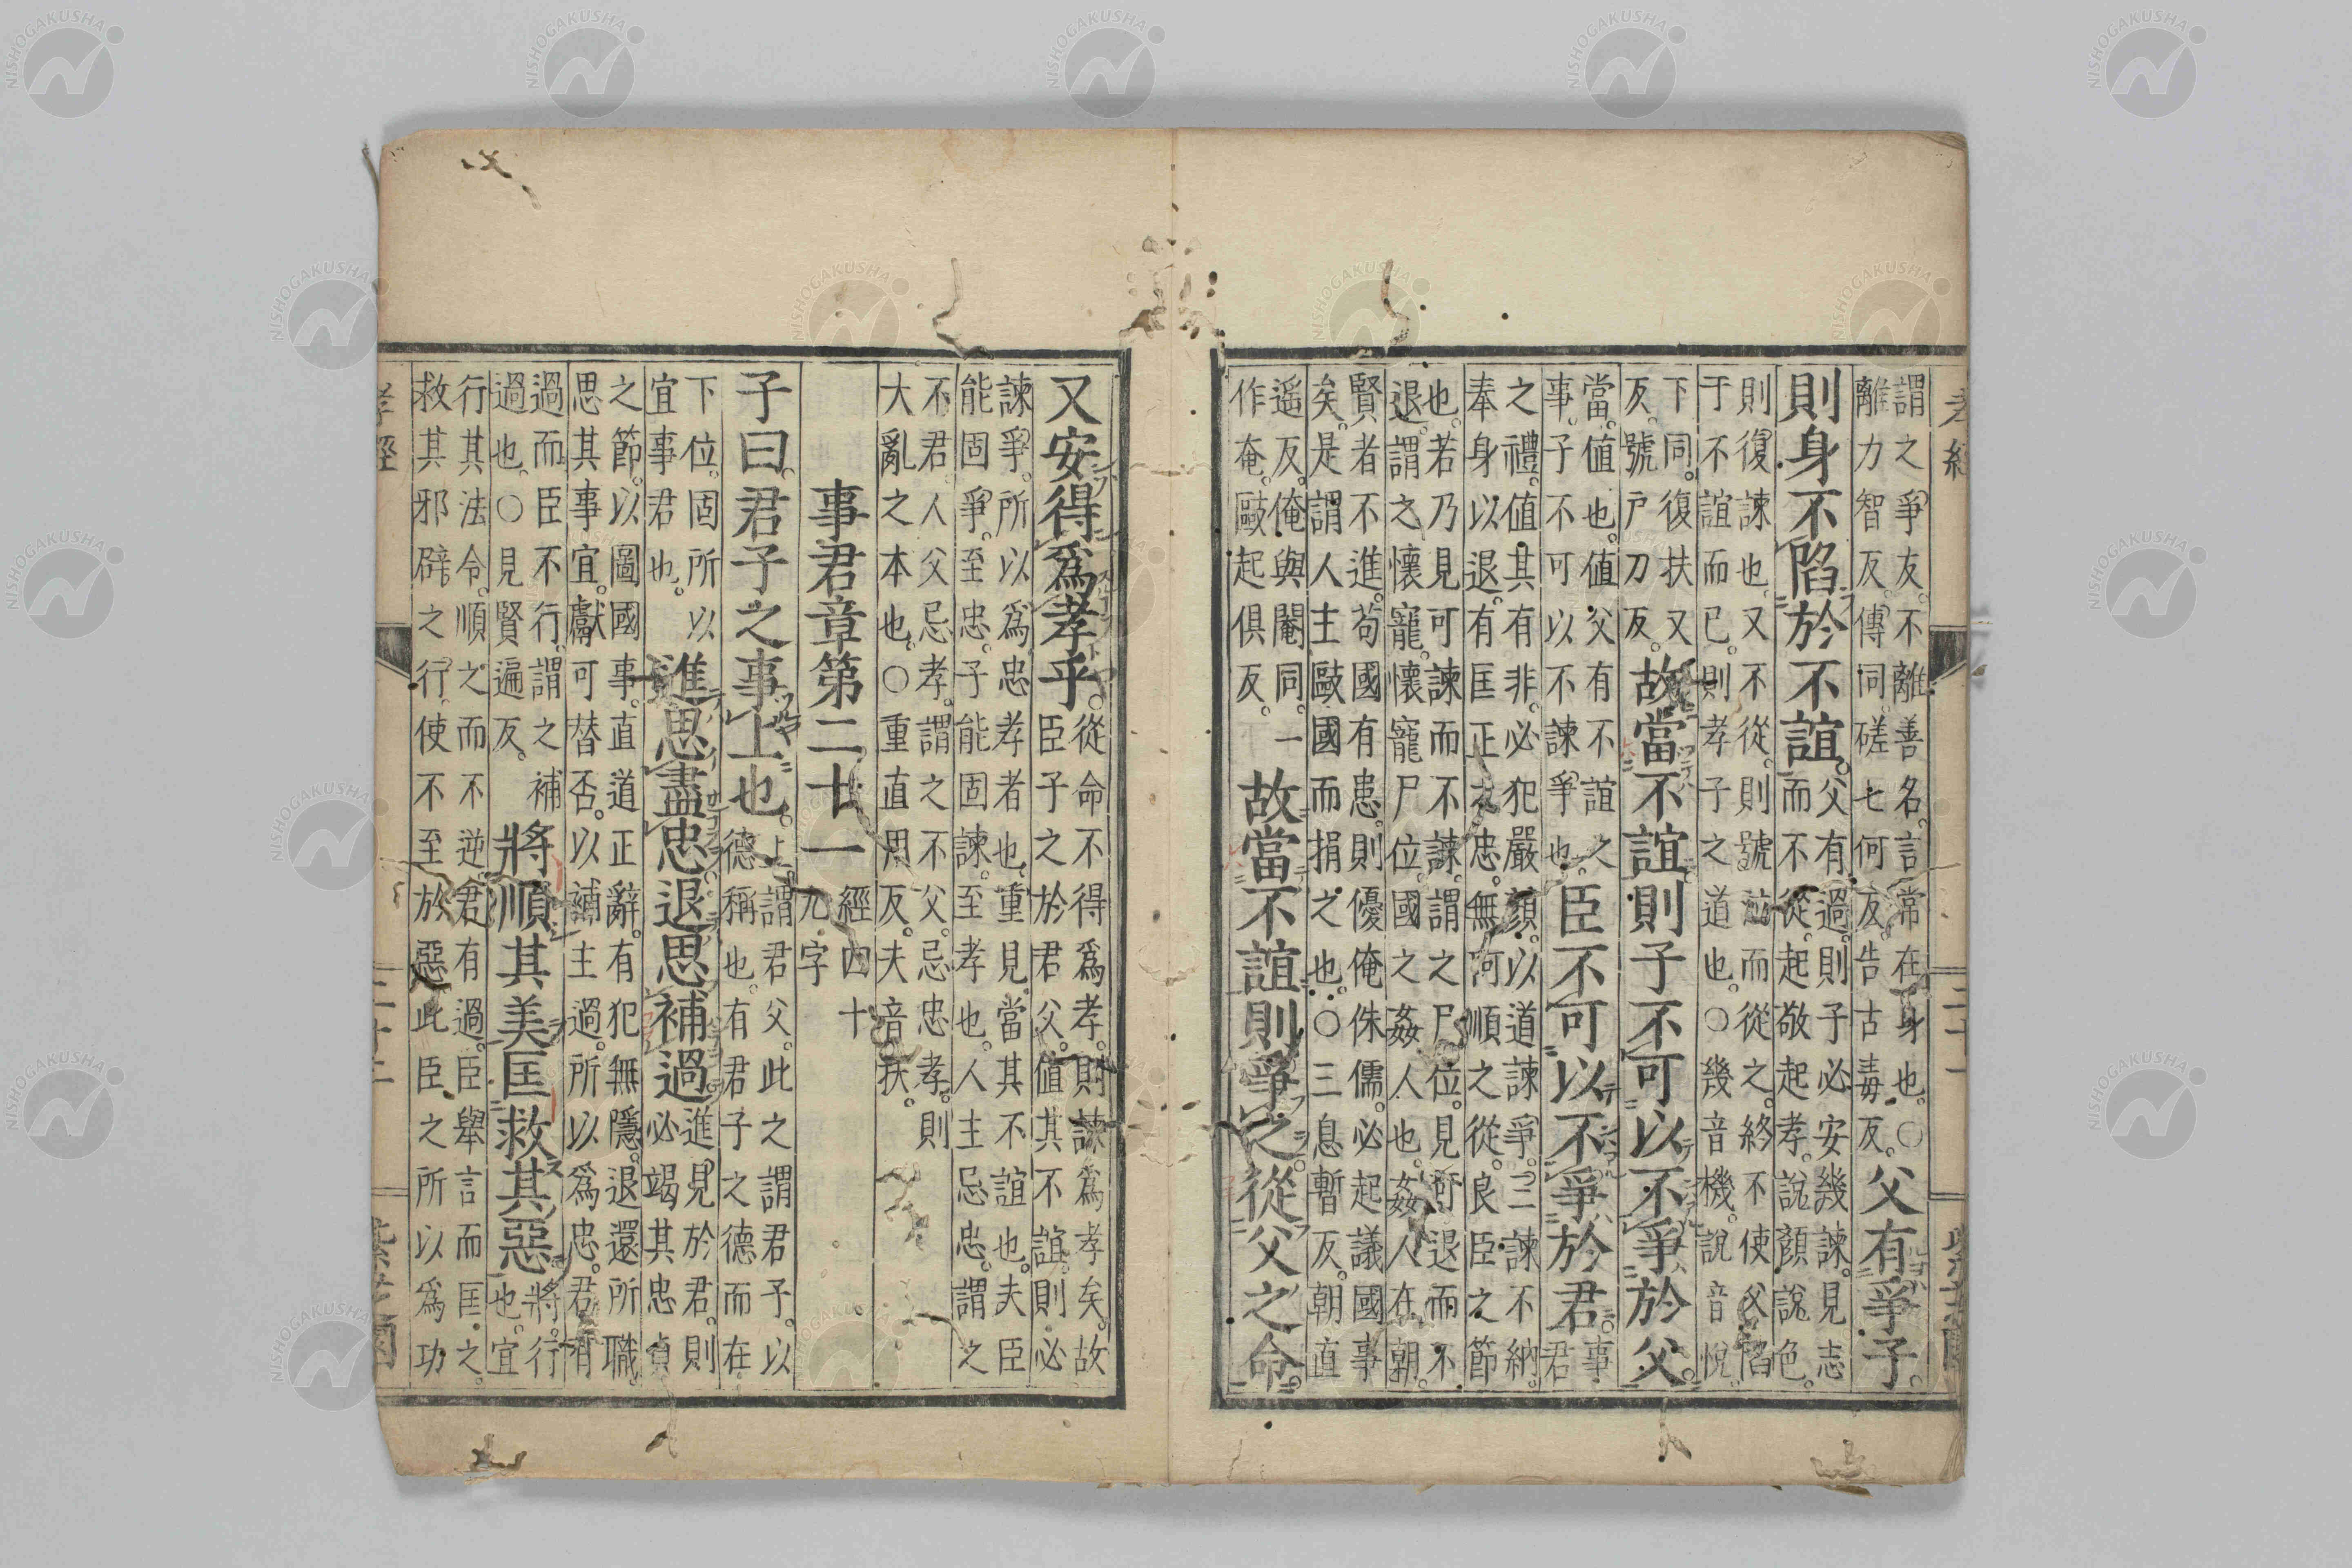 謂之爭友不離善名言常在身也○
離力智反傳同磋七何反告古毒反
父有爭子
則身不陷於不誼
父有過則子必安幾諫見志
而不從起敬起孝說顏說色
則復諫也又不從則號泣而從之終不使父陷
于不誼而已則孝子之道也○幾音機說音悅
下同復扶又
反號戶刀反
故當不誼則子不可以不爭於父
當值也值父有不誼之
事子不可以不諫爭也
臣不可以不爭於君
事
君
之禮值其有非必犯嚴顏以道諫爭三諫不納
奉身以退有匡正之忠無阿順之從良臣之節
也若乃見可諫而不諫謂之尸位見可退而不
退謂之懷寵懷寵尸位國之姦人也姦人在朝
賢者不進苟國有患則優俺侏儒必起議國事
矣是謂人主歐國而捐之也○三息暫反朝直
遥反俺與閹同一
作奄歐起俱反
故當不誼則爭之從父之命
又安得爲孝乎
從命不得爲孝則諫爲孝矣故
臣子之於君父值其不誼則必
諫爭所以爲忠孝者也重見當其不誼也夫臣
能固爭至忠子能固諫至孝也人主忌忠謂之
不君人父忌孝謂之不父忌忠孝則
大亂之本也○重直用反夫音扶
事君章第二十一
經四十
九字
子曰君子之事上也
上謂君父此之謂君子以
德稱也有君子之德而在
下位固所以
宜事君也
進思盡忠退思補過
進見於君則
必竭其忠貞
之節以圖國事直道正辭有犯無隱退還所職
思其事宜獻可替否以補主過所以爲忠君有
過而臣不行謂之補
過也○見賢遍反
將順其美匡救其惡
將行
也宜
行其法令順之而不逆君有過臣舉言而匡之
救其邪辟之行使不至於惡此臣之所以爲功
孝經